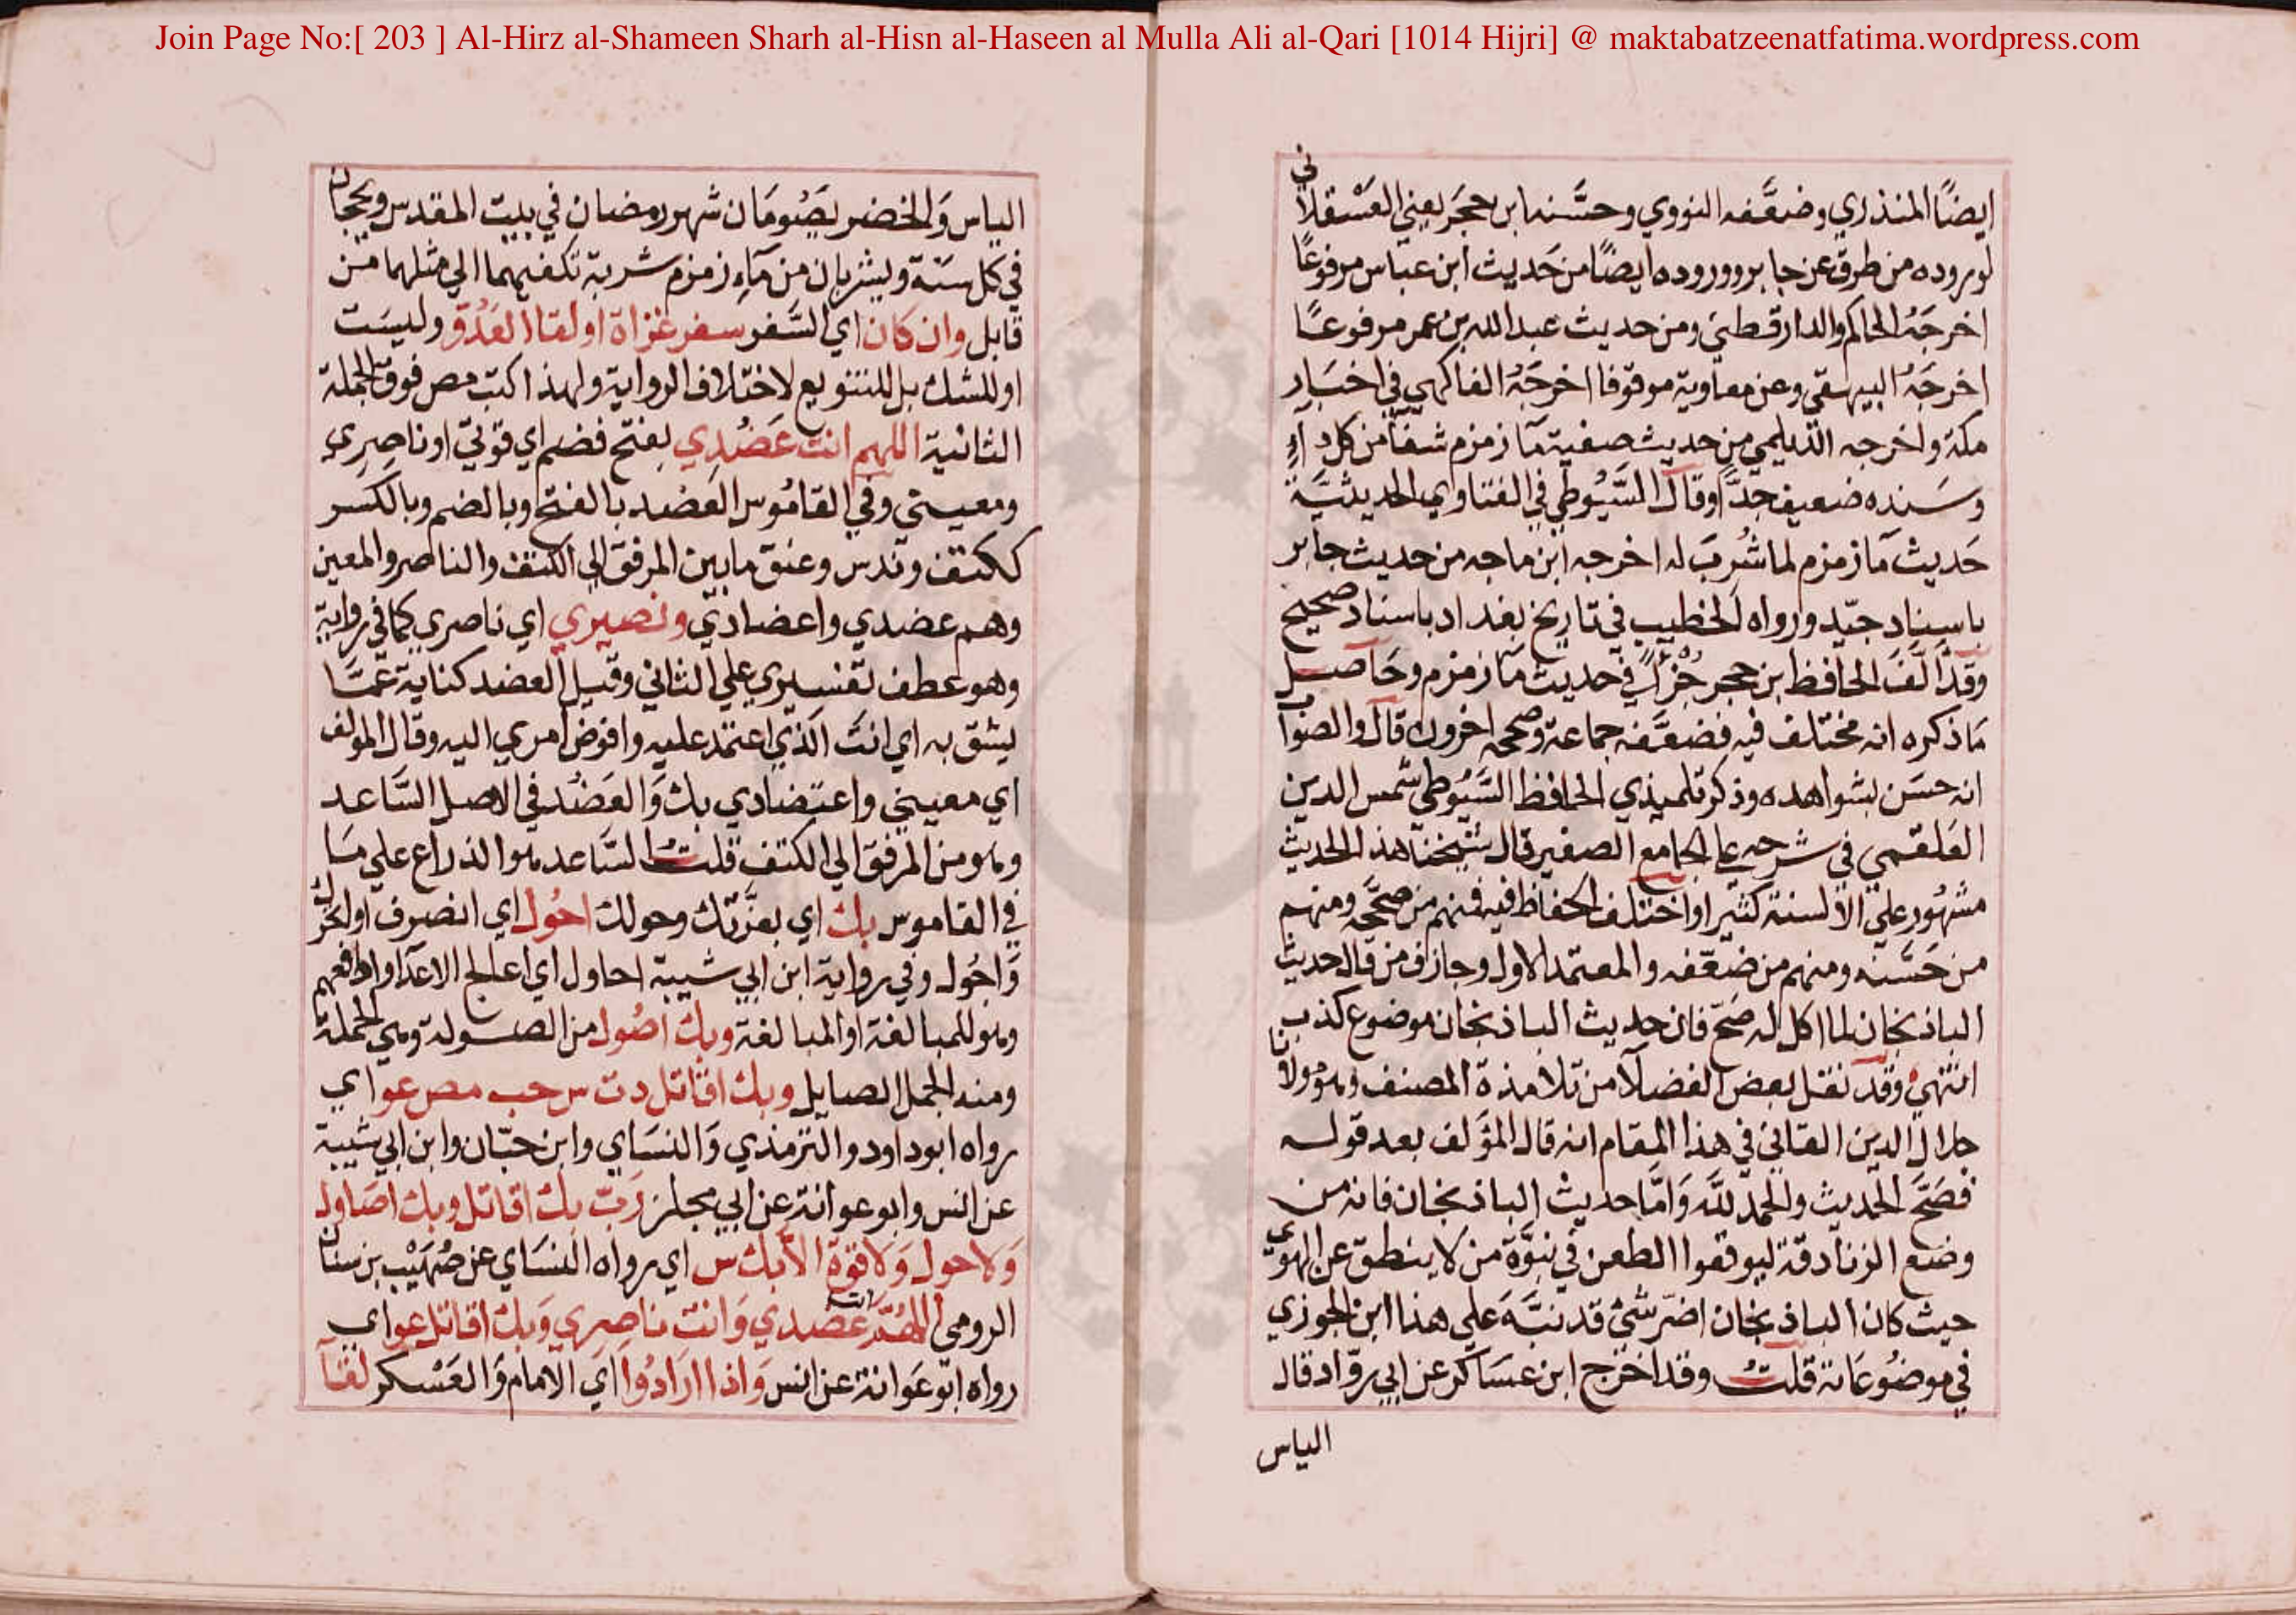 Join Page No:[ 203 ] Al-Hirz al-Shameen Sharh al-Hisn al-Haseen al Mulla Ali al-Qari [1014 Hijri] @ maktabatzeenatfatima.wordpress.com
ايضًا المنذري وضعَّفه النووي وحسَّنه ابن حجَر يعني العَسْقلاني
لوروده من طرق عن جابر ووروده ايضًا من حَديث ابن عباس مرفوعًا
اخرجَهُ الحاكم والدارقطني ومن حديث عبد الله بن عمر مرفوعًا
اخرجَهُ البيهقي وعن معاوية موقوفا اخرجَهُ الفاكهي في اخبَار
مكة واخرجه الديلمي من حديث صفية مآ زمزم شفآ من كل دآء
وسَنده ضعيف جدًّا وقال السَّيُوطي في الفتاوي الحديثيَّة
حَديث مآ زمزم لما شُربَ له اخرجه ابن ماجه من حديث جابر
باسناد جيّد ورواه الخطيب في تاريخ بغداد باسناد صحيح
وقد الَّفَ الحافظ بن حجر جُزءًا في حديث مآ زمزم وحَاصل
مَا ذكره انه مختلف فيه فضعَّفه جماعة وصححه اخرون قال والصواب
انه حسَن بشواهده وذكر تلميذي الحافظ السَّيُوطي شمس الدين
العَلقمي في شرحه على الجامع الصغير قال شيخنا هذا الحديث
مشهُور علي الالسنة كثيرا واختلف الحفاظ فيه فمنهم من صحَّحه ومنهم
من حَسَّنه ومنهم من ضعّفه والمعتمد الاول وجازف من قال حديث
الباذنجان لما اكل له صَحّ فان حديث الباذنجان موضوع كذب
انتهى وقد نقل بعض الفضلآ من تلامذة المصنف وهو مولانا
جلال الدين القايني في هذا المقام انه قال المؤلف بعد قوله
فصَحَّ الحديث والحمد للّه وَامَّا حديث الباذنجان فانه من
وضع الزنادقة ليوقفوا الطعن في نبوَّة من لا ينطق عن الهوي
حيث كان الباذنجان اضرّ شئ قد نبَّهَ علي هذا ابن الجوزي
في موضوعَاته قلتُ وقد اخرج ابن عسَاكر عن ابي روّاد قال
الياس
الياس وَالخضر يَصُومَان شهر رمضان في بيت المقدس ويحجان
في كل سنة ويشربان من مآء زمزم شربة تكفيهما الي مثلهما من
قابل وان كان اي السَّفر سفر غزاة او لقا العَدُوّ وليسَت
او للشك بل للتنويع لاختلاف الرواية ولهذا كتب مص فوق الجملة
الثانية اللهم انت عَضُدِي بفتح فضم اي قوّتي او ناصِري
ومعيني وفي القامُوس العَضُد بالفتح وبالضم وبالكسر
ككتف وندس وعنق ما بين المرفق الي الكتف والناصر والمعين
وهم عضدي واعضادي ونصيري اي ناصري كما في رواية
وهو عطف تفسيري علي الثاني وقيل العضد كناية عَمَّا
يثق به اي انتَ الَّذي اعتمد عليه وافوض امري اليه وقال المؤلف
اي معيني واعتضادي بك وَالعَضُد في الاصل السَّاعد
وهو من المرفق الي الكتف قلتُ السَّاعد هو الذراع علي مَا
في القاموس بك اي بعزَّتك وحولك احُول اي انصرف او اتحرك
وَاجُول وفي رواية ابن ابي شيبة احاول اي اعالج الاعدآ وادافعهم
وهو للمبالغة او المبالغة وبك اصُول من الصولة وهي الحملة
ومنه الجمل الصايل وبك اقاتل دت س حب مص عو اي
رواه ابو داود والترمذي وَالنسَاي وابن حبّان وابن ابي شيبة
عن انس وابو عوانة عن ابي مجلز رَبّ بك اقاتل وبك اصَاول
وَلا حول وَلا قوّة الّا بك س اي رواه النسَاي عن صُهَيْب بن سنان
الرومي اللهُمَّ انت عضدي وَانت ناصِري وَبك اقاتل عو اي
رواه ابو عَوانة عن انس وَاذا ارَادُوا اي الامام وَالعَسْكر لقآ